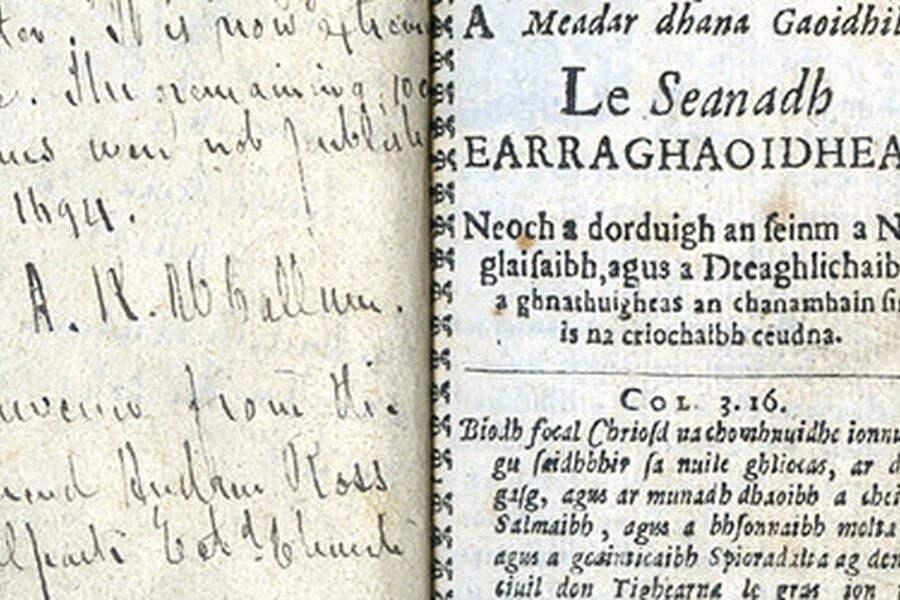 It is now extrem
The remaining 100
were not publish
1694.
A. K. McCallum.
from his
Ross
A Meadar dhana Gaoidhil
Le Seanadh
EARRAGHAOIDHEA
Neoch a dorduigh an ſeinm a N
glaiſaibh, agus a Dteaghlichaib
a ghnathuigheas an chanamhain ſi
is na criochaibh ceudna.
COL. 3. 16.
Biodh focal Chrioſd na chomhnuidhe ionnu
gu ſaidhbhir ſa nuile ghliocas, ar d
gaſg, agus ar munadh dhaoibh a chei
Salmaibh, agus a bhfonnaibh molta
agus a gcainticaibh Spioradalta ag den
ciuil don Tighearna le gras ion